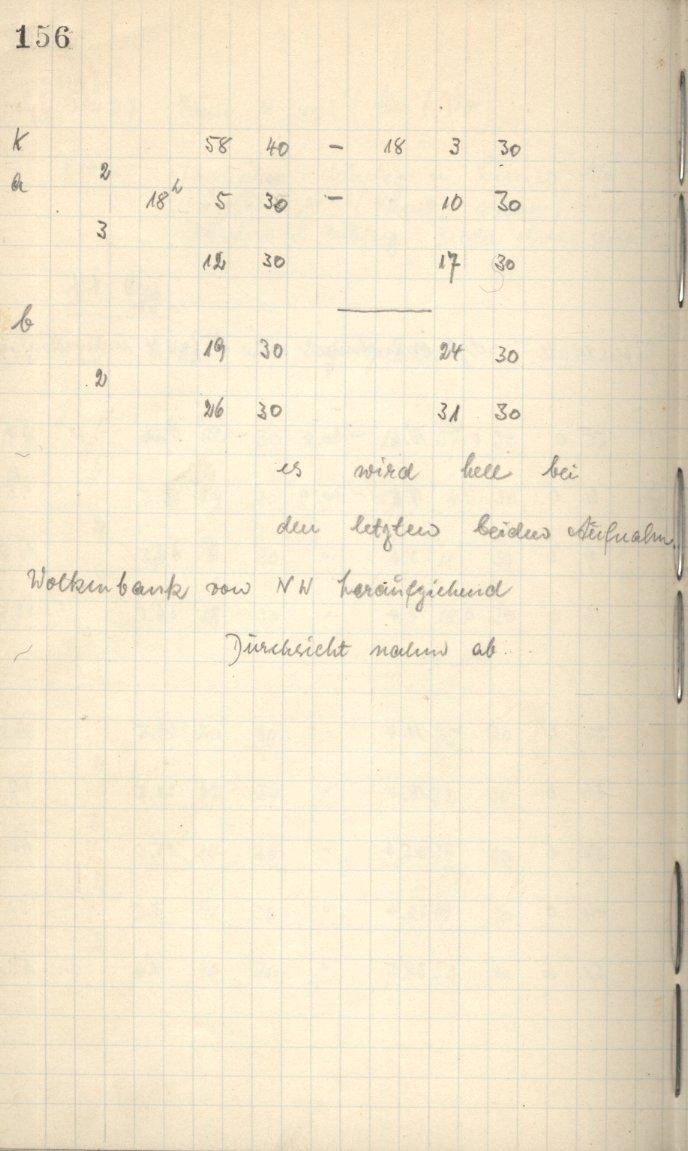 156
K 58 40 – 18 3 30
a 2
18h 5 30 – 10 30
3
12 30 17 30
b
19 30 24 30
2
26 30 31 30
es wird hell bei
den letzten beiden Aufnahm.
Wolkenbank von NW heraufziehend
Durchsicht nahm ab.